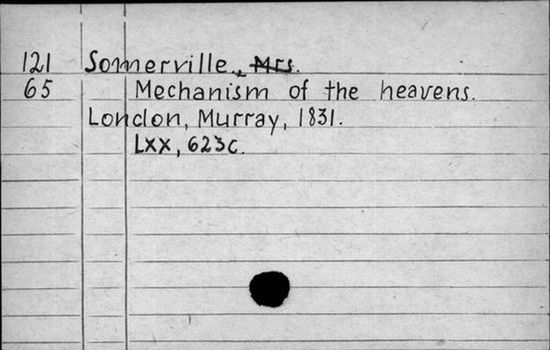 121 Somerville, Mrs.
65 Mechanism of the heavens.
London, Murray, 1831.
Lxx, 623c.